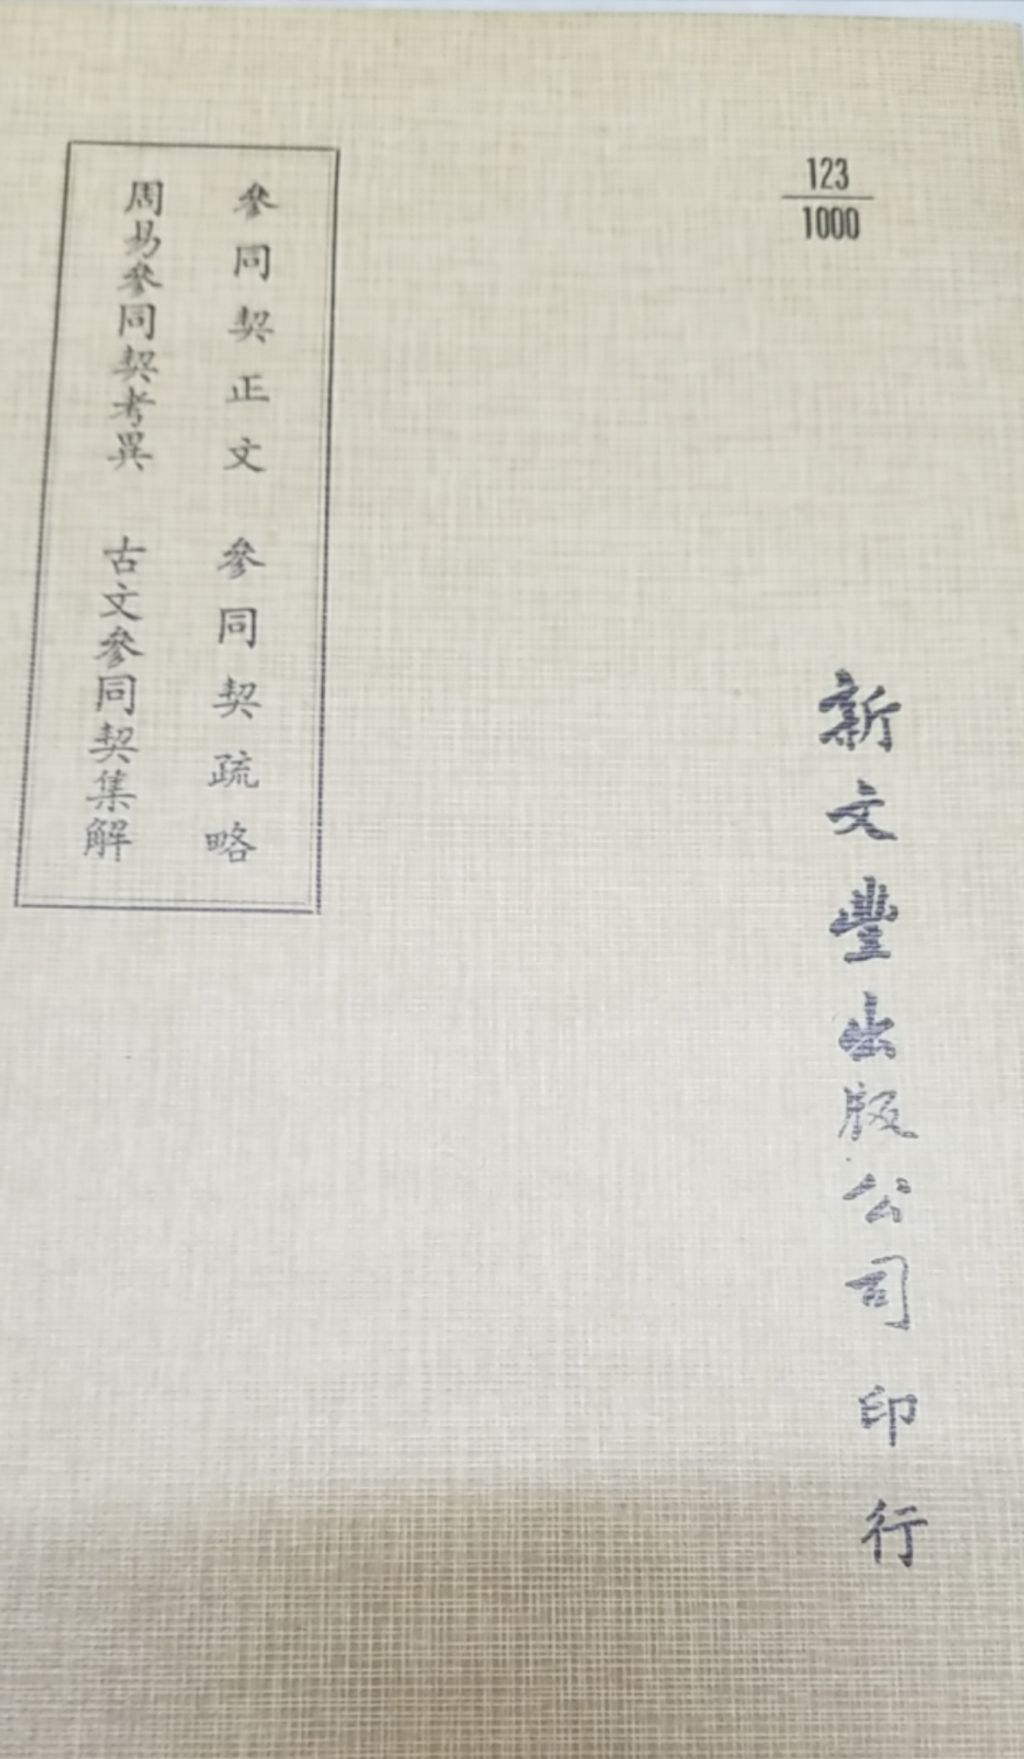 123
1000
新文豐出版公司 印行
參同契正文 參同契疏略
周易參同契考異 古文參同契集解